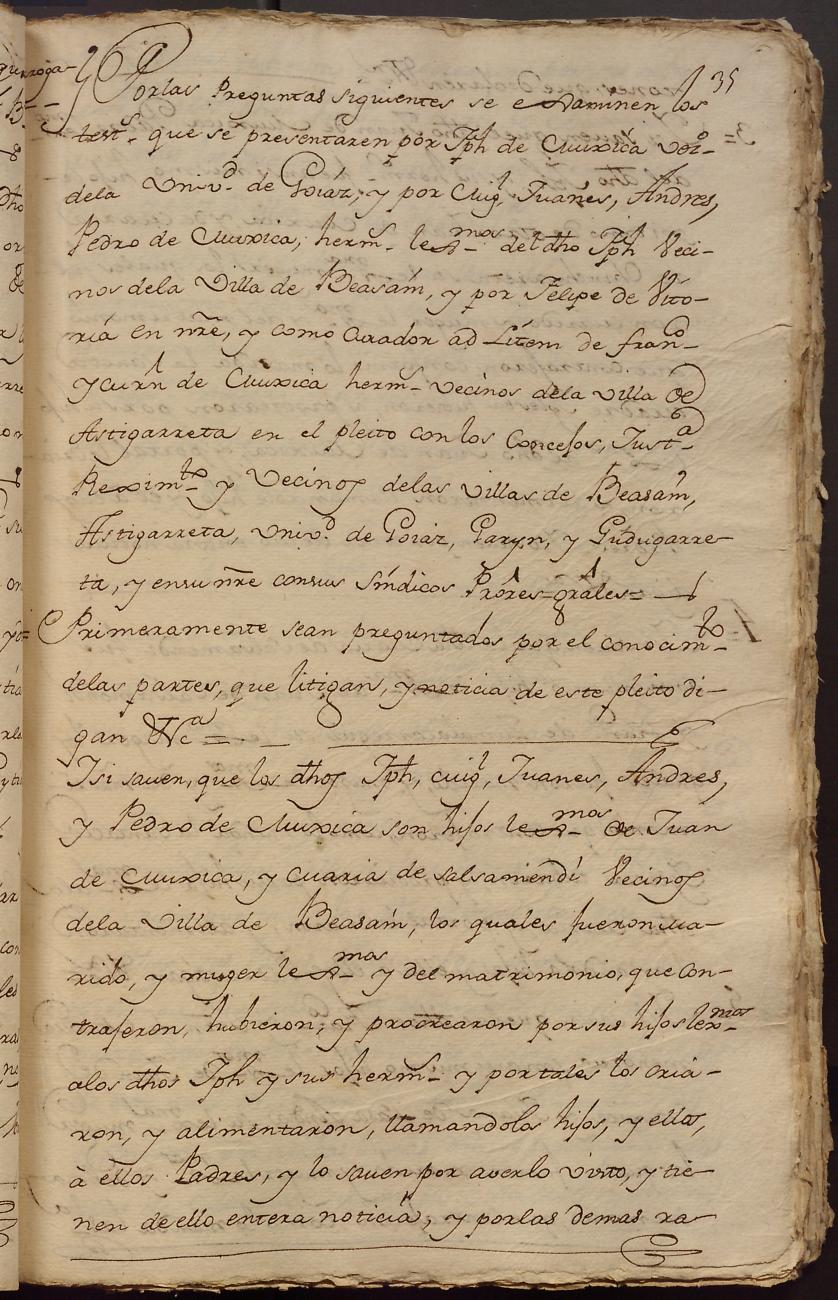 35
Porlas Preguntas siguientes se examinen los
tests. que se presentaren por Jph de Muxica vezo.
dela Univd. de Goiaz, y por Migl. Juanes, Andres,
Pedro de Muxica, herms. lexmos. del dho Jph Veci-
nos dela Villa de Beasaín, y por Felipe de Vito-
ria en nre, y como Curador ad Litem de franco.
y de Muxica herms. vecinos dela villa de
Astigarreta en el pleito con los Concejos, Justa.
Reximto. y Vecinos delas villas de Beasaín,
Astigarreta, Univd. de Goiaz, Garyn, y Gudugarre-
ta, y ensu nre consus Síndicos Prores. grales=
Primeramente sean preguntados por el conocimto.
delas partes, que litigan, y noticia de este pleito di-
gan &ca =
Isi saven, que los dhos Jph, Migl., Juanes, Andres,
y Pedro de Muxica son hijos lexmos. de Juan
de Muxica, y Maria de salsamendi Vecinos
dela Villa de Beasaín, los quales fueron ma-
rido, y muger lexmos. y del matrimonio, que con-
trajeron, hubieron, y procrearon por sus hijos lexmos.
alos dhos Jph y sus herms. y por tales los cria-
ron, y alimentaron, llamandolos hijos, y ellos,
à ellos Padres, y lo saven por averlo visto, y tie-
nen de ello entera noticia, y porlas demas ra-